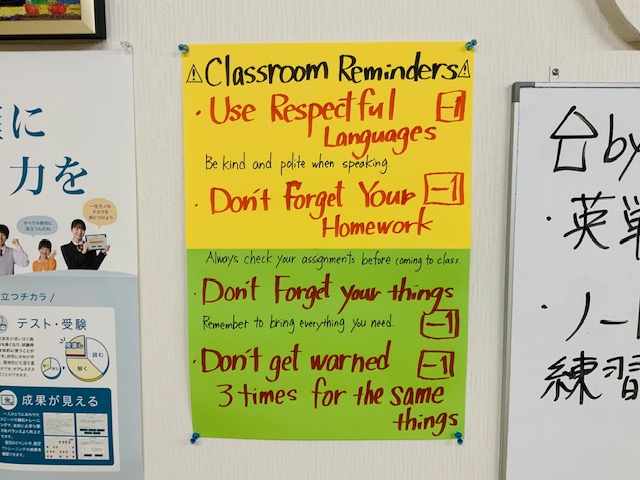 ⚠Classroom Reminders⚠
・Use Respectful -1
Languages
Be kind and polite when speaking.
・Don't Forget Your -1
Homework
Always check your assignments before coming to class.
・Don't Forget your things
Remember to bring everything you need. -1
・Don't get warned -1
3 times for the same
things
に
力を
すべての教科に
役立つんだね
一生モノの
チカラを
身につけよう
立つチカラ
テスト・受験
読む
解く
成果が見える
by
・英単
・ノー
練習